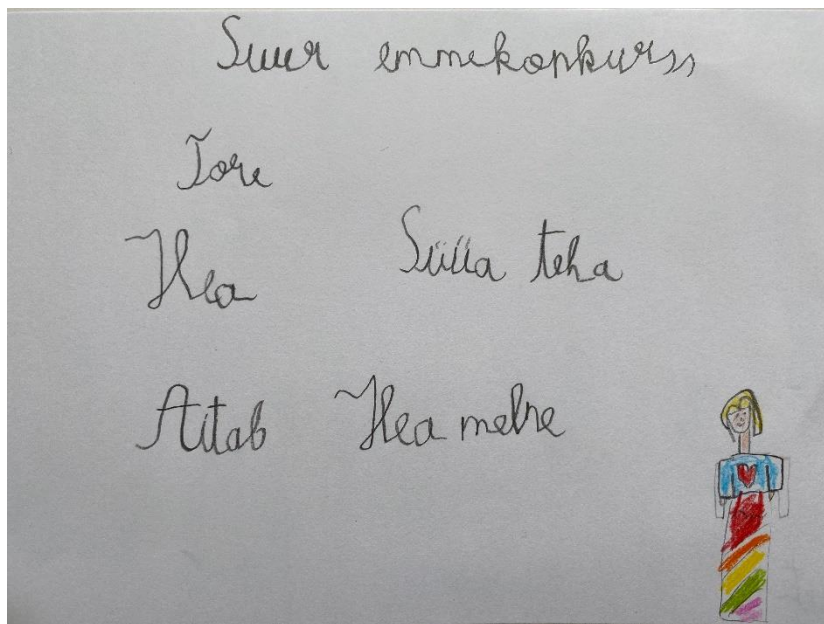 Suur emmekonkurss
Tore
Hea Süüa teha
Aitab Hea melne